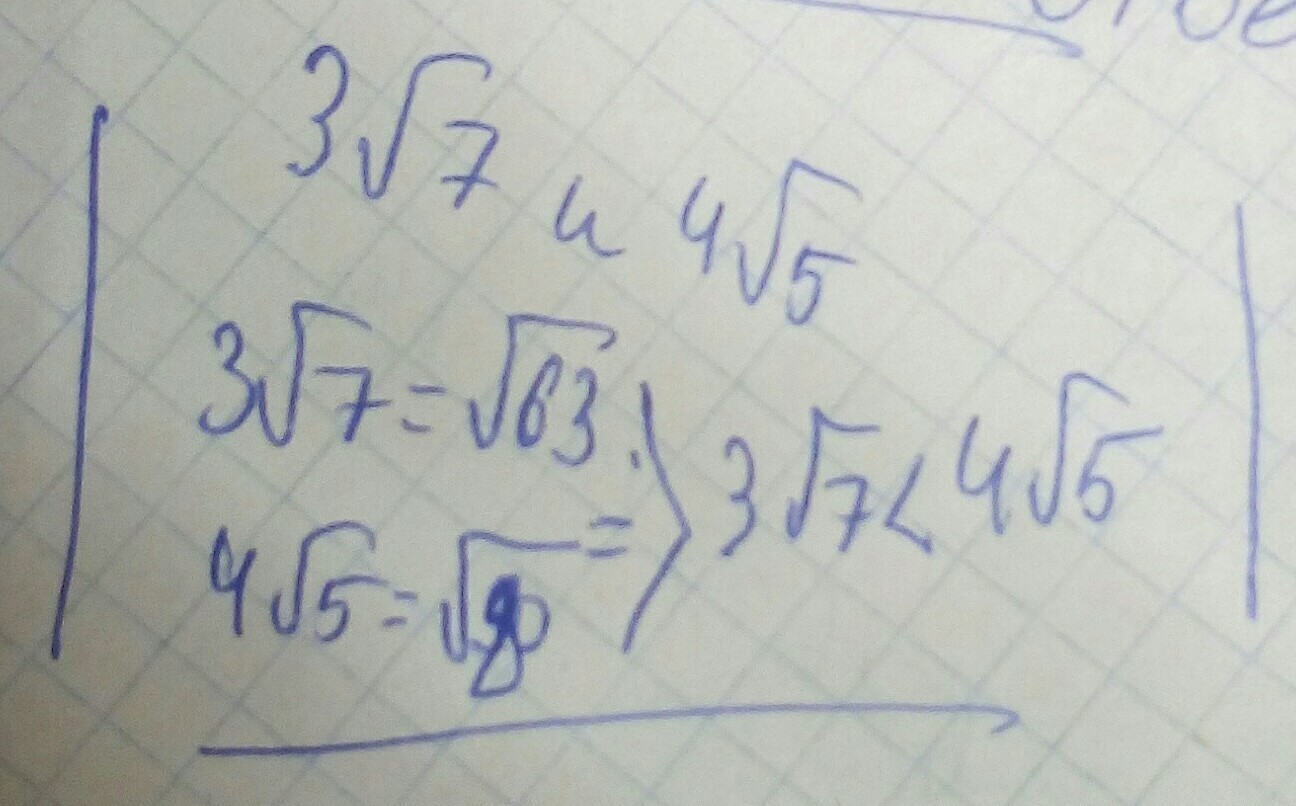 3√7 и 4√5
3√7 = √63
4√5 = √80
=> 3√7 < 4√5